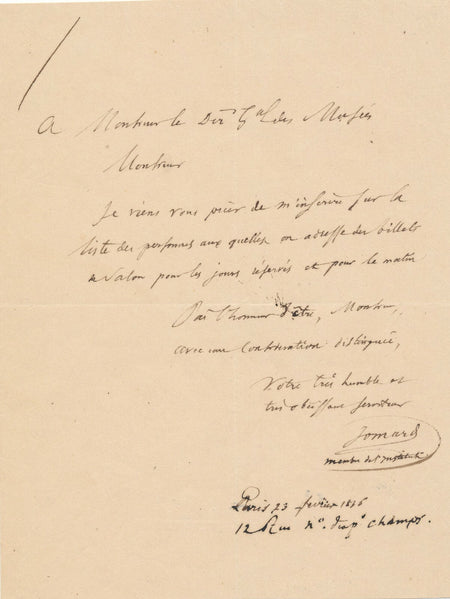 A Monsieur le Dir.r G.al des Musées
Monsieur
Je viens vous prier de m'inscrire sur la
liste des personnes aux quelles on adresse des billets
de Salon pour les jours réservés et pour le matin
J'ai l'honneur d'être, Monsieur,
avec une Considération distinguée,
Votre très humble et
très obéissant serviteur
Jomard
membre de l'institut
Paris 23 février 1836
12 Rue N.e des p.s champs.